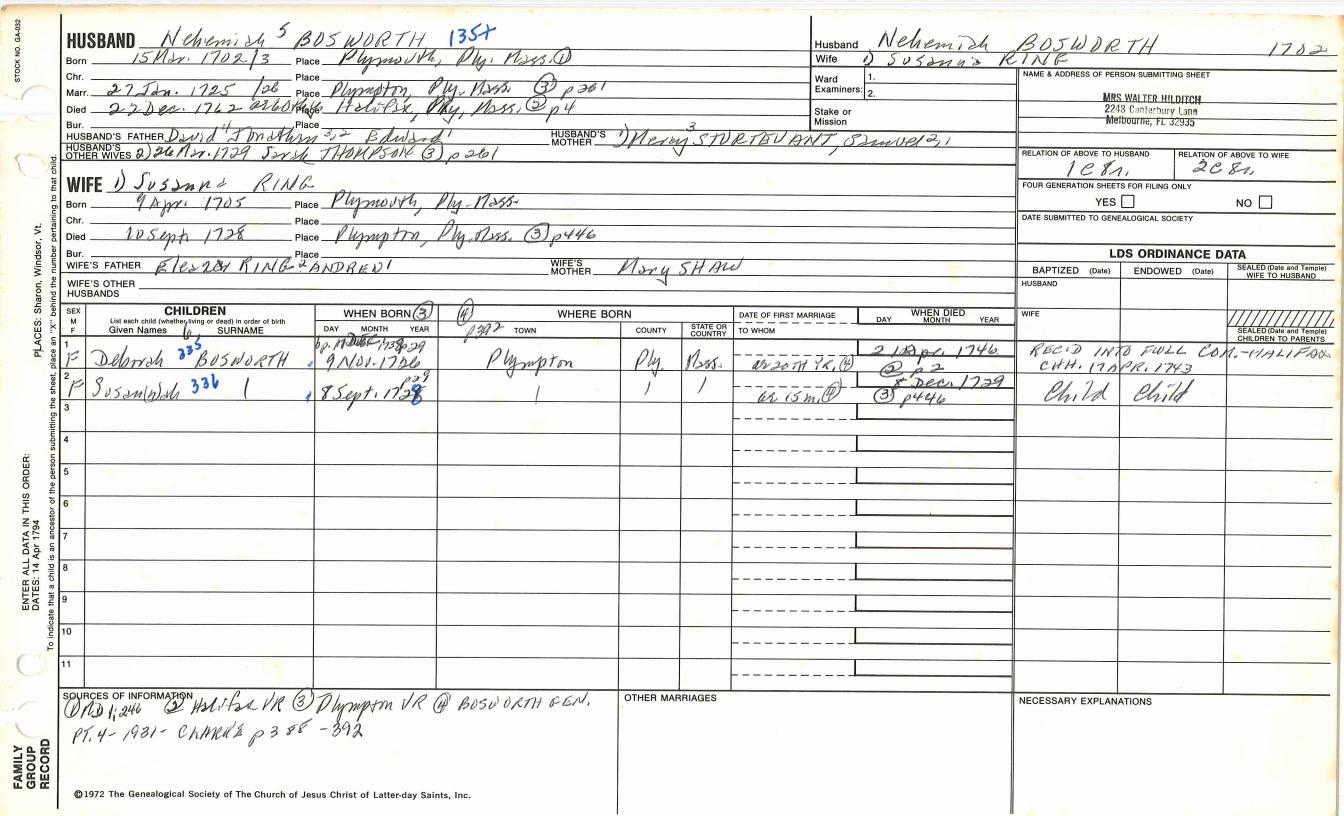 STOCK NO. GA-032
HUSBAND Nehemiah 5 BOSWORTH 135+
Born 15 Mar. 1702/3 Place Plymouth, Ply. Mass. ①
Chr. Place
Marr. 27 Jan. 1725/26 Place Plympton, Ply. Mass. ③ p261
Died 22 Dec. 1762 Place Halifax, Ply. Mass. ② p4
Bur. Place
HUSBAND'S FATHER David 4 Jonathan 3,2 Edward 1 HUSBAND'S MOTHER 1) Mercy 3 STURTEVANT, Samuel 2,1
HUSBAND'S OTHER WIVES 2) 26 Mar. 1729 Sarah THOMPSON ③ p261
Husband Nehemiah BOSWORTH 1702
Wife 1) Susanna RING
Ward Examiners: 1.
2.
Stake or Mission
NAME & ADDRESS OF PERSON SUBMITTING SHEET
MRS WALTER HILDITCH
2243 Canterbury Lane
Melbourne, FL 32935
RELATION OF ABOVE TO HUSBAND RELATION OF ABOVE TO WIFE
1C8r. 2C8r.
FOUR GENERATION SHEETS FOR FILING ONLY
YES NO
DATE SUBMITTED TO GENEALOGICAL SOCIETY
WIFE 1) Susanna RING
Born 9 Apr. 1705 Place Plymouth, Ply. Mass.
Chr. Place
Died 10 Sept. 1728 Place Plympton, Ply. Mass. ③ p446
Bur. Place
WIFE'S FATHER Eleazer RING 2 ANDREW 1 WIFE'S MOTHER Mary SHAW
WIFE'S OTHER HUSBANDS
LDS ORDINANCE DATA
BAPTIZED (Date) ENDOWED (Date) SEALED (Date and Temple) WIFE TO HUSBAND
HUSBAND
WIFE
SEALED (Date and Temple) CHILDREN TO PARENTS
SEX M F
CHILDREN
List each child (whether living or dead) in order of birth
Given Names 6 SURNAME
WHEN BORN ③
DAY MONTH YEAR
④ p392 WHERE BORN
TOWN COUNTY STATE OR COUNTRY
DATE OF FIRST MARRIAGE
TO WHOM
WHEN DIED
DAY MONTH YEAR
1 F Deborah 335 BOSWORTH 9 Nov. 1726 p29 Plympton Ply. Mass. ae 20th YR. ④ 21 Apr. 1746 ② p2 REC'D INTO FULL COM.-HALIFAX CHH. 17 APR. 1743
2 F Susan(n)ah 336 | 8 Sept. 1728 p29 | | | ae 15 m. ④ 8 Dec. 1729 ③ p446 Child Child
3
4
5
6
7
8
9
10
11
SOURCES OF INFORMATION
① MD 1;246 ② Halifax VR ③ Plympton VR ④ BOSWORTH GEN.
PT. 4- 1931- CLARKE p388-392
OTHER MARRIAGES
NECESSARY EXPLANATIONS
©1972 The Genealogical Society of The Church of Jesus Christ of Latter-day Saints, Inc.
FAMILY GROUP RECORD
ENTER ALL DATA IN THIS ORDER:
DATES: 14 Apr 1794
PLACES: Sharon, Windsor, Vt.
To indicate that a child is an ancestor of the person submitting the sheet, place an "X" behind the number pertaining to that child.